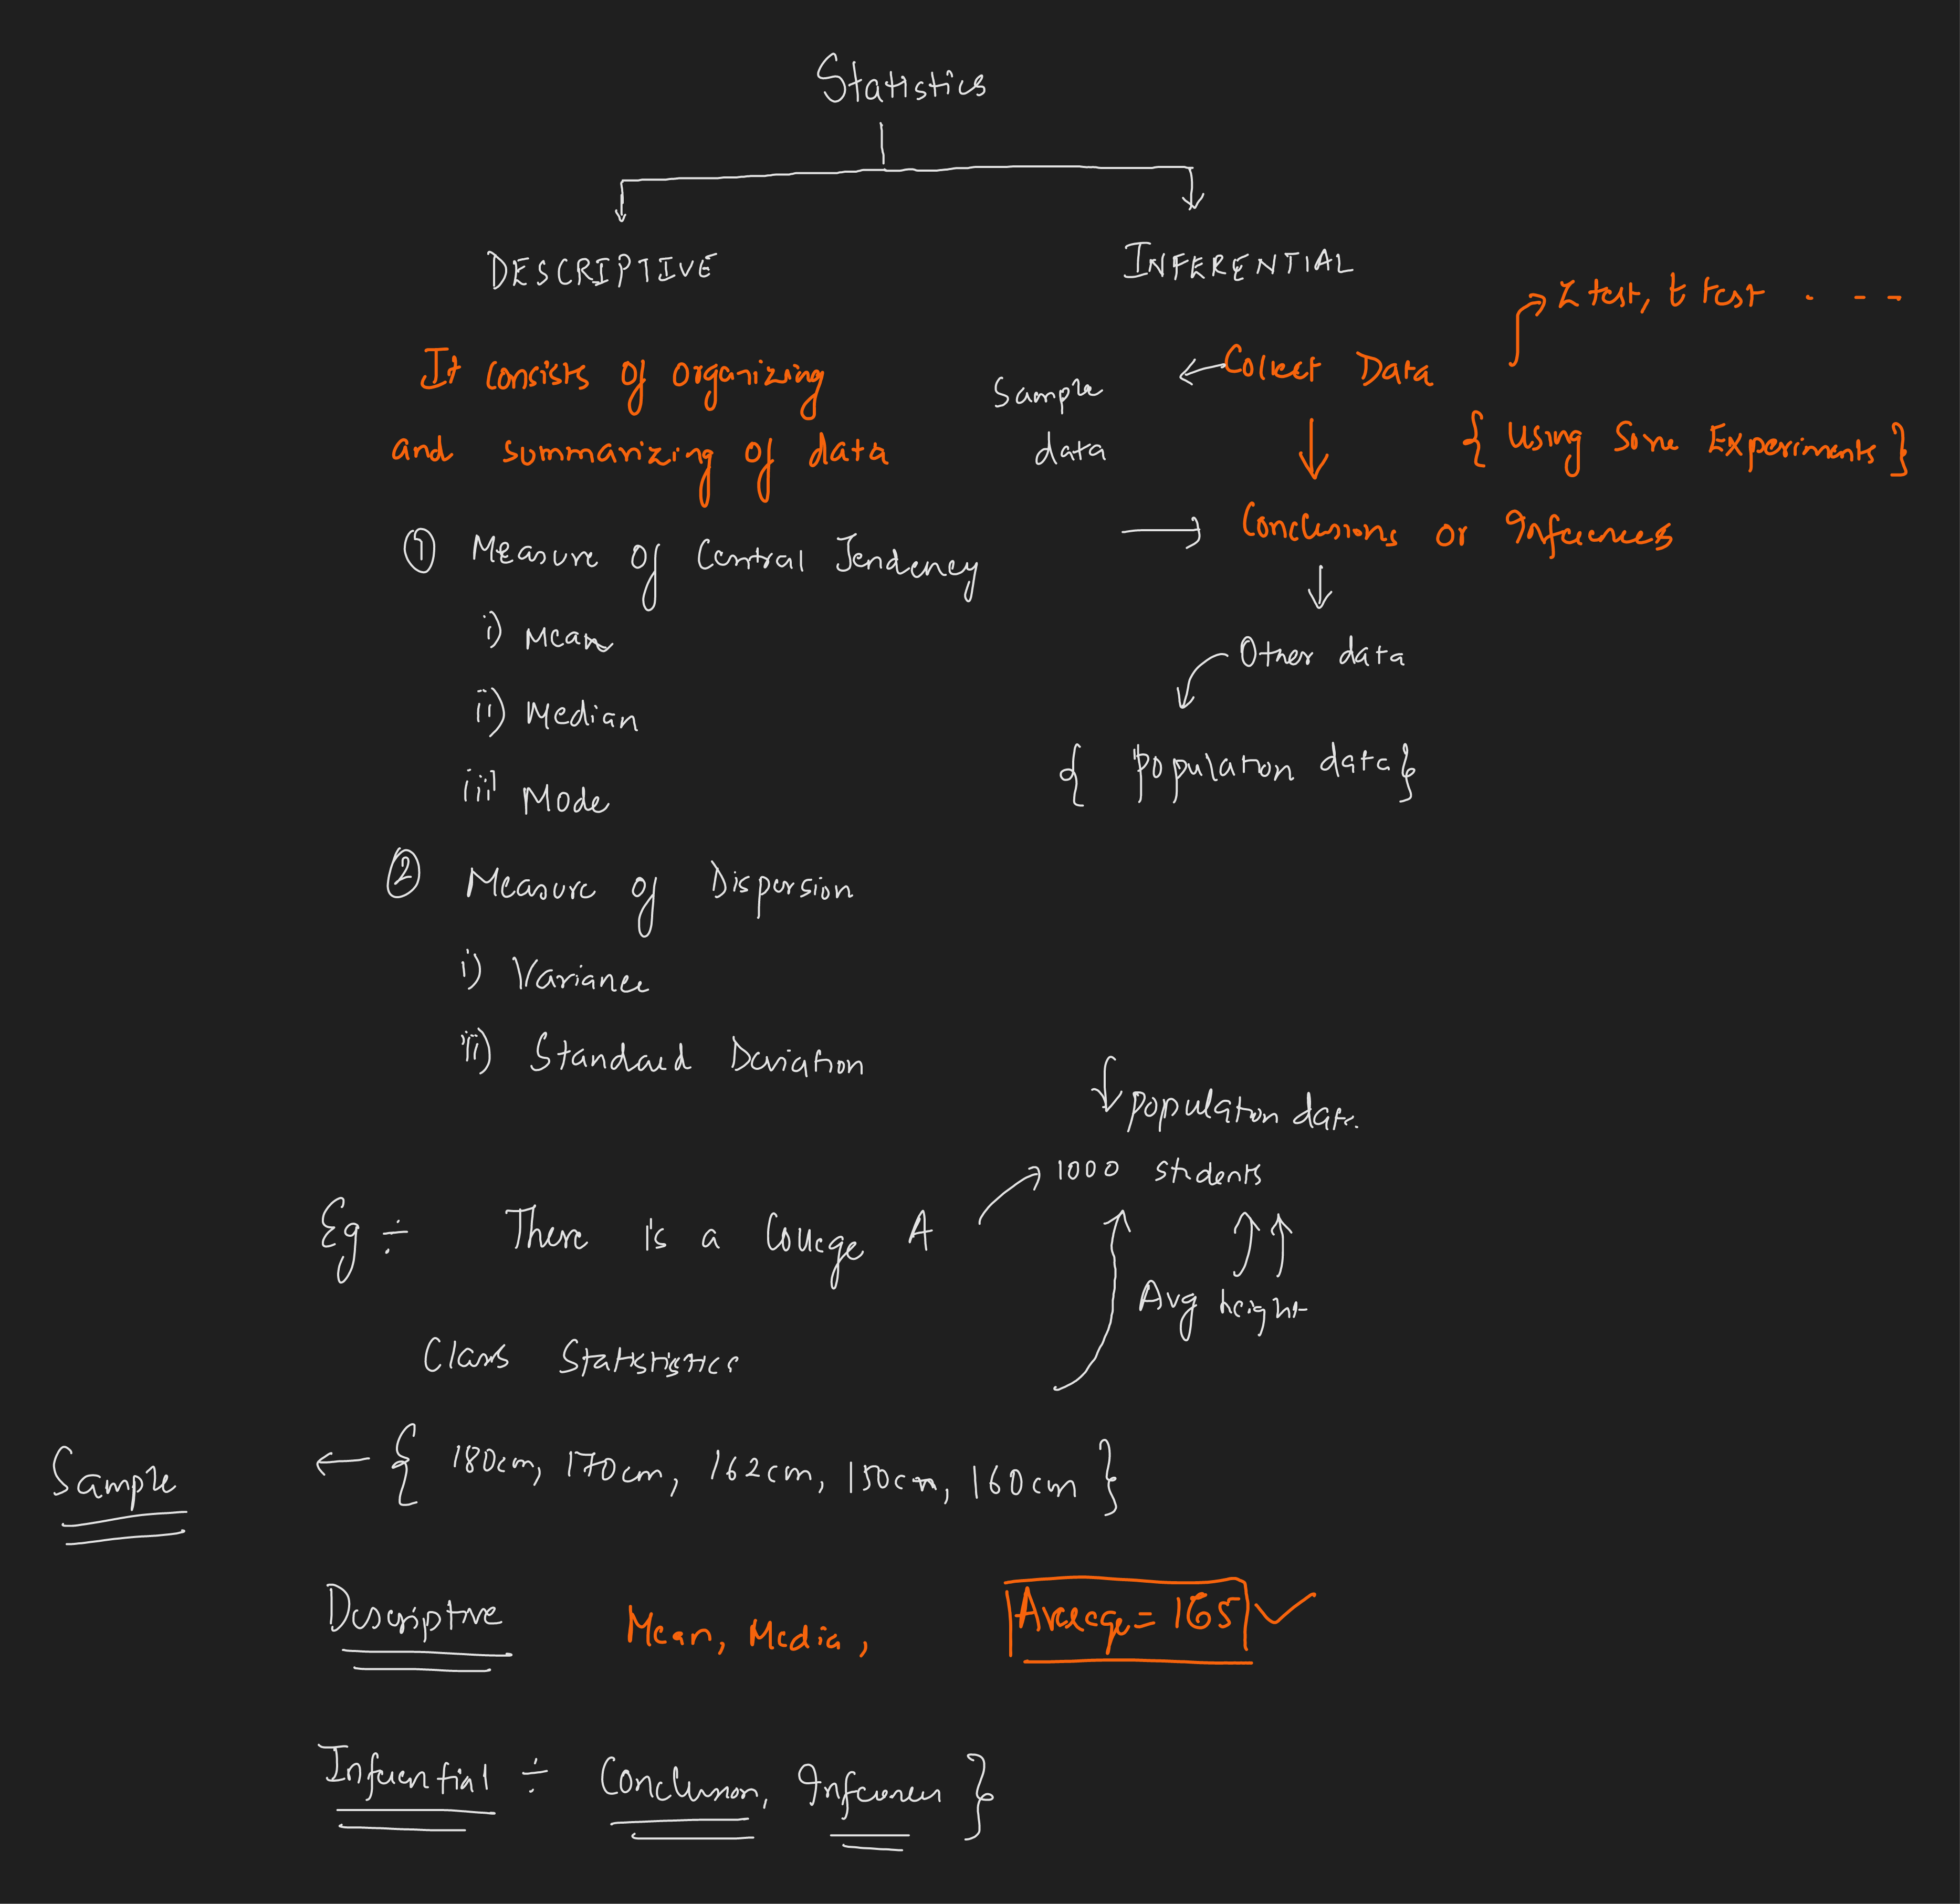 Statistics
DESCRIPTIVE
INFERENTIAL
It consists of organizing
and summarizing of data
① Measure of Central Tendency
i) Mean
ii) Median
iii) Mode
② Measure of Dispersion
i) Variance
ii) Standard Deviation
Z test, t test . - -
Collect Data
Sample
data
{ Using some Experiments }
Conclusions or Inferences
Other data
{ Population data }
population data
1000 students
Eg ÷ There is a College A
Avg height
Class Statistics
Sample ← { 180cm, 170cm, 162cm, 150cm, 160cm }
Descriptive Mean, Median, Average = 165 ✓
Inferential ÷ Conclusion, Inference }